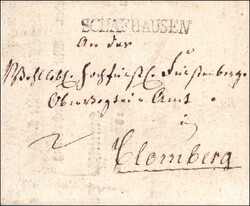 SCHAFHAUSEN
An das
Wohllobl. Hochfürstl. Fürstenberg.
Obervogtei Amt
in
Blomberg